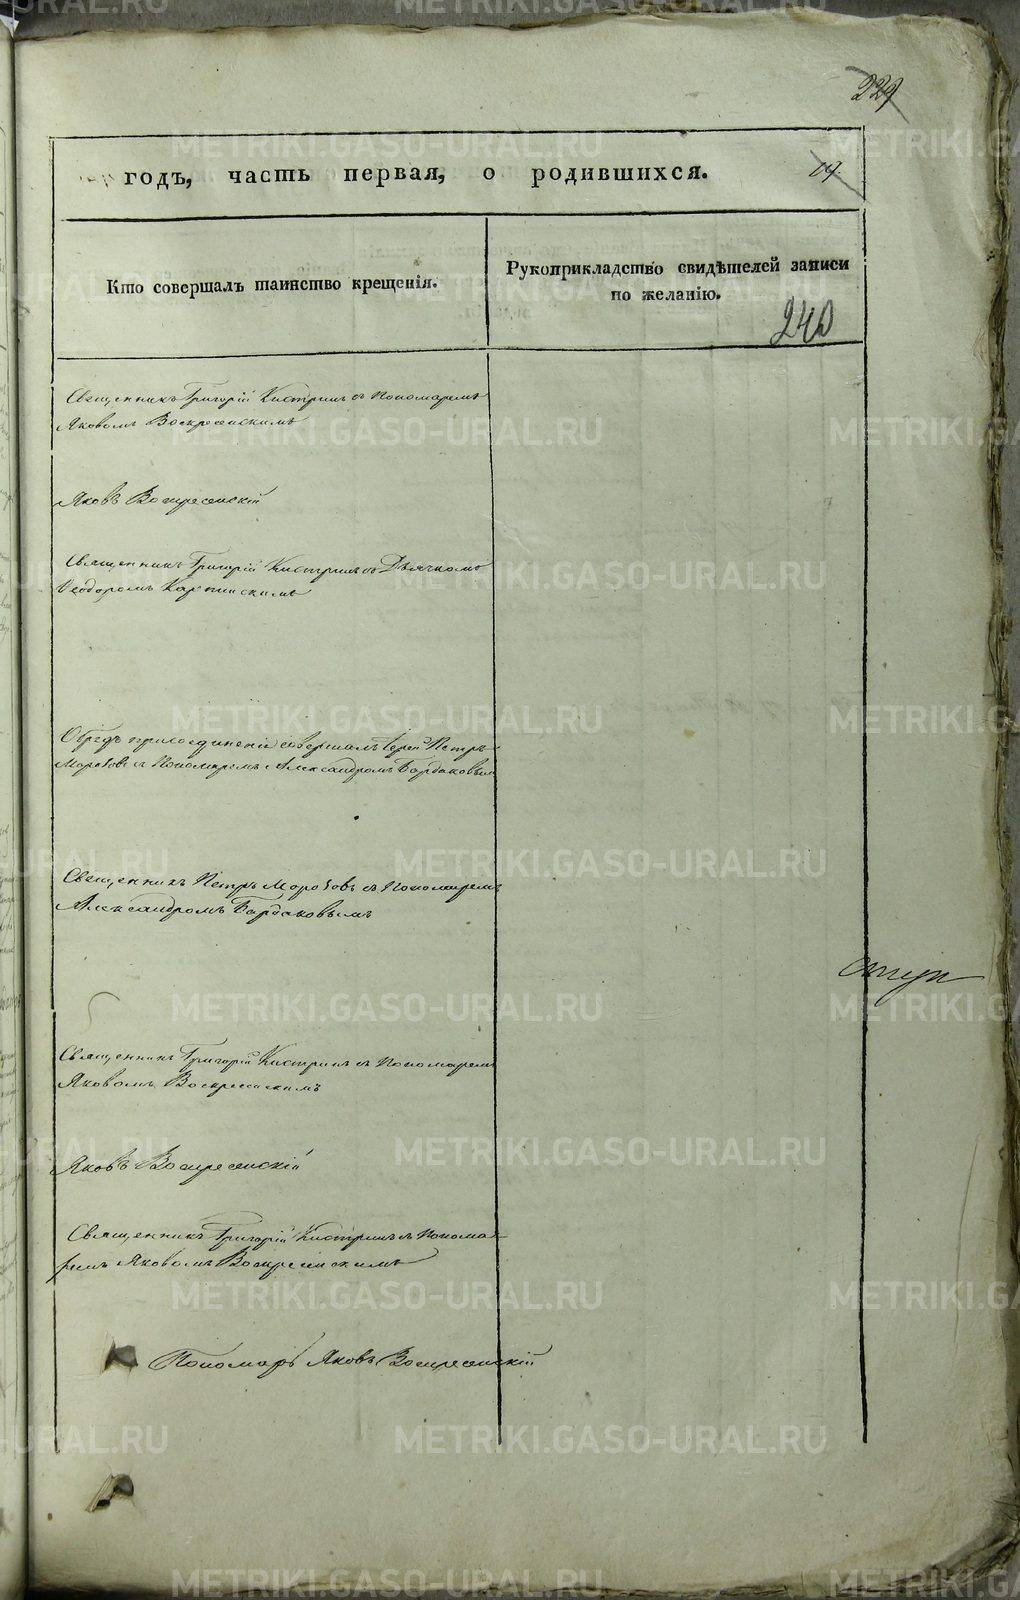 229
годъ, часть первая, о родившихся.
19.
Кто совершалъ таинство крещенія.
Рукоприкладство свидѣтелей записи
по желанію.
240
Священникъ Григорій Кистринъ съ Пономаремъ
Яковомъ Воскресенскимъ
Яковъ Воскресенскій
Священникъ Григорій Кистринъ съ Дьячкомъ
Ѳеодоромъ Карпинскимъ
Обрядъ присоединенія совершалъ Іерей Петръ
Морозовъ съ Пономаремъ Александромъ Бардаковымъ
Священникъ Петръ Морозовъ съ Пономаремъ
Александромъ Бардаковымъ
Священникъ Григорій Кистринъ съ Пономаремъ
Яковомъ Воскресенскимъ
Яковъ Воскресенскій
Священникъ Григорій Кистринъ съ Понома-
ремъ Яковомъ Воскресенскимъ
Пономарь Яковъ Воскресенскій
METRIKI.GASO-URAL.RU